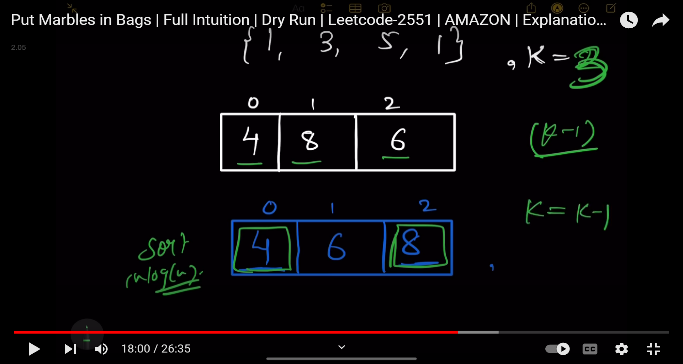 Put Marbles in Bags | Full Intuition | Dry Run | Leetcode-2551 | AMAZON | Explanatio...
{1, 3, 5, 1} , K = 3
0 1 2
4 8 6
(K-1)
0 1 2
K = K-1
4 6 8
Sort
nlog(n).
18:00 / 26:35
CC